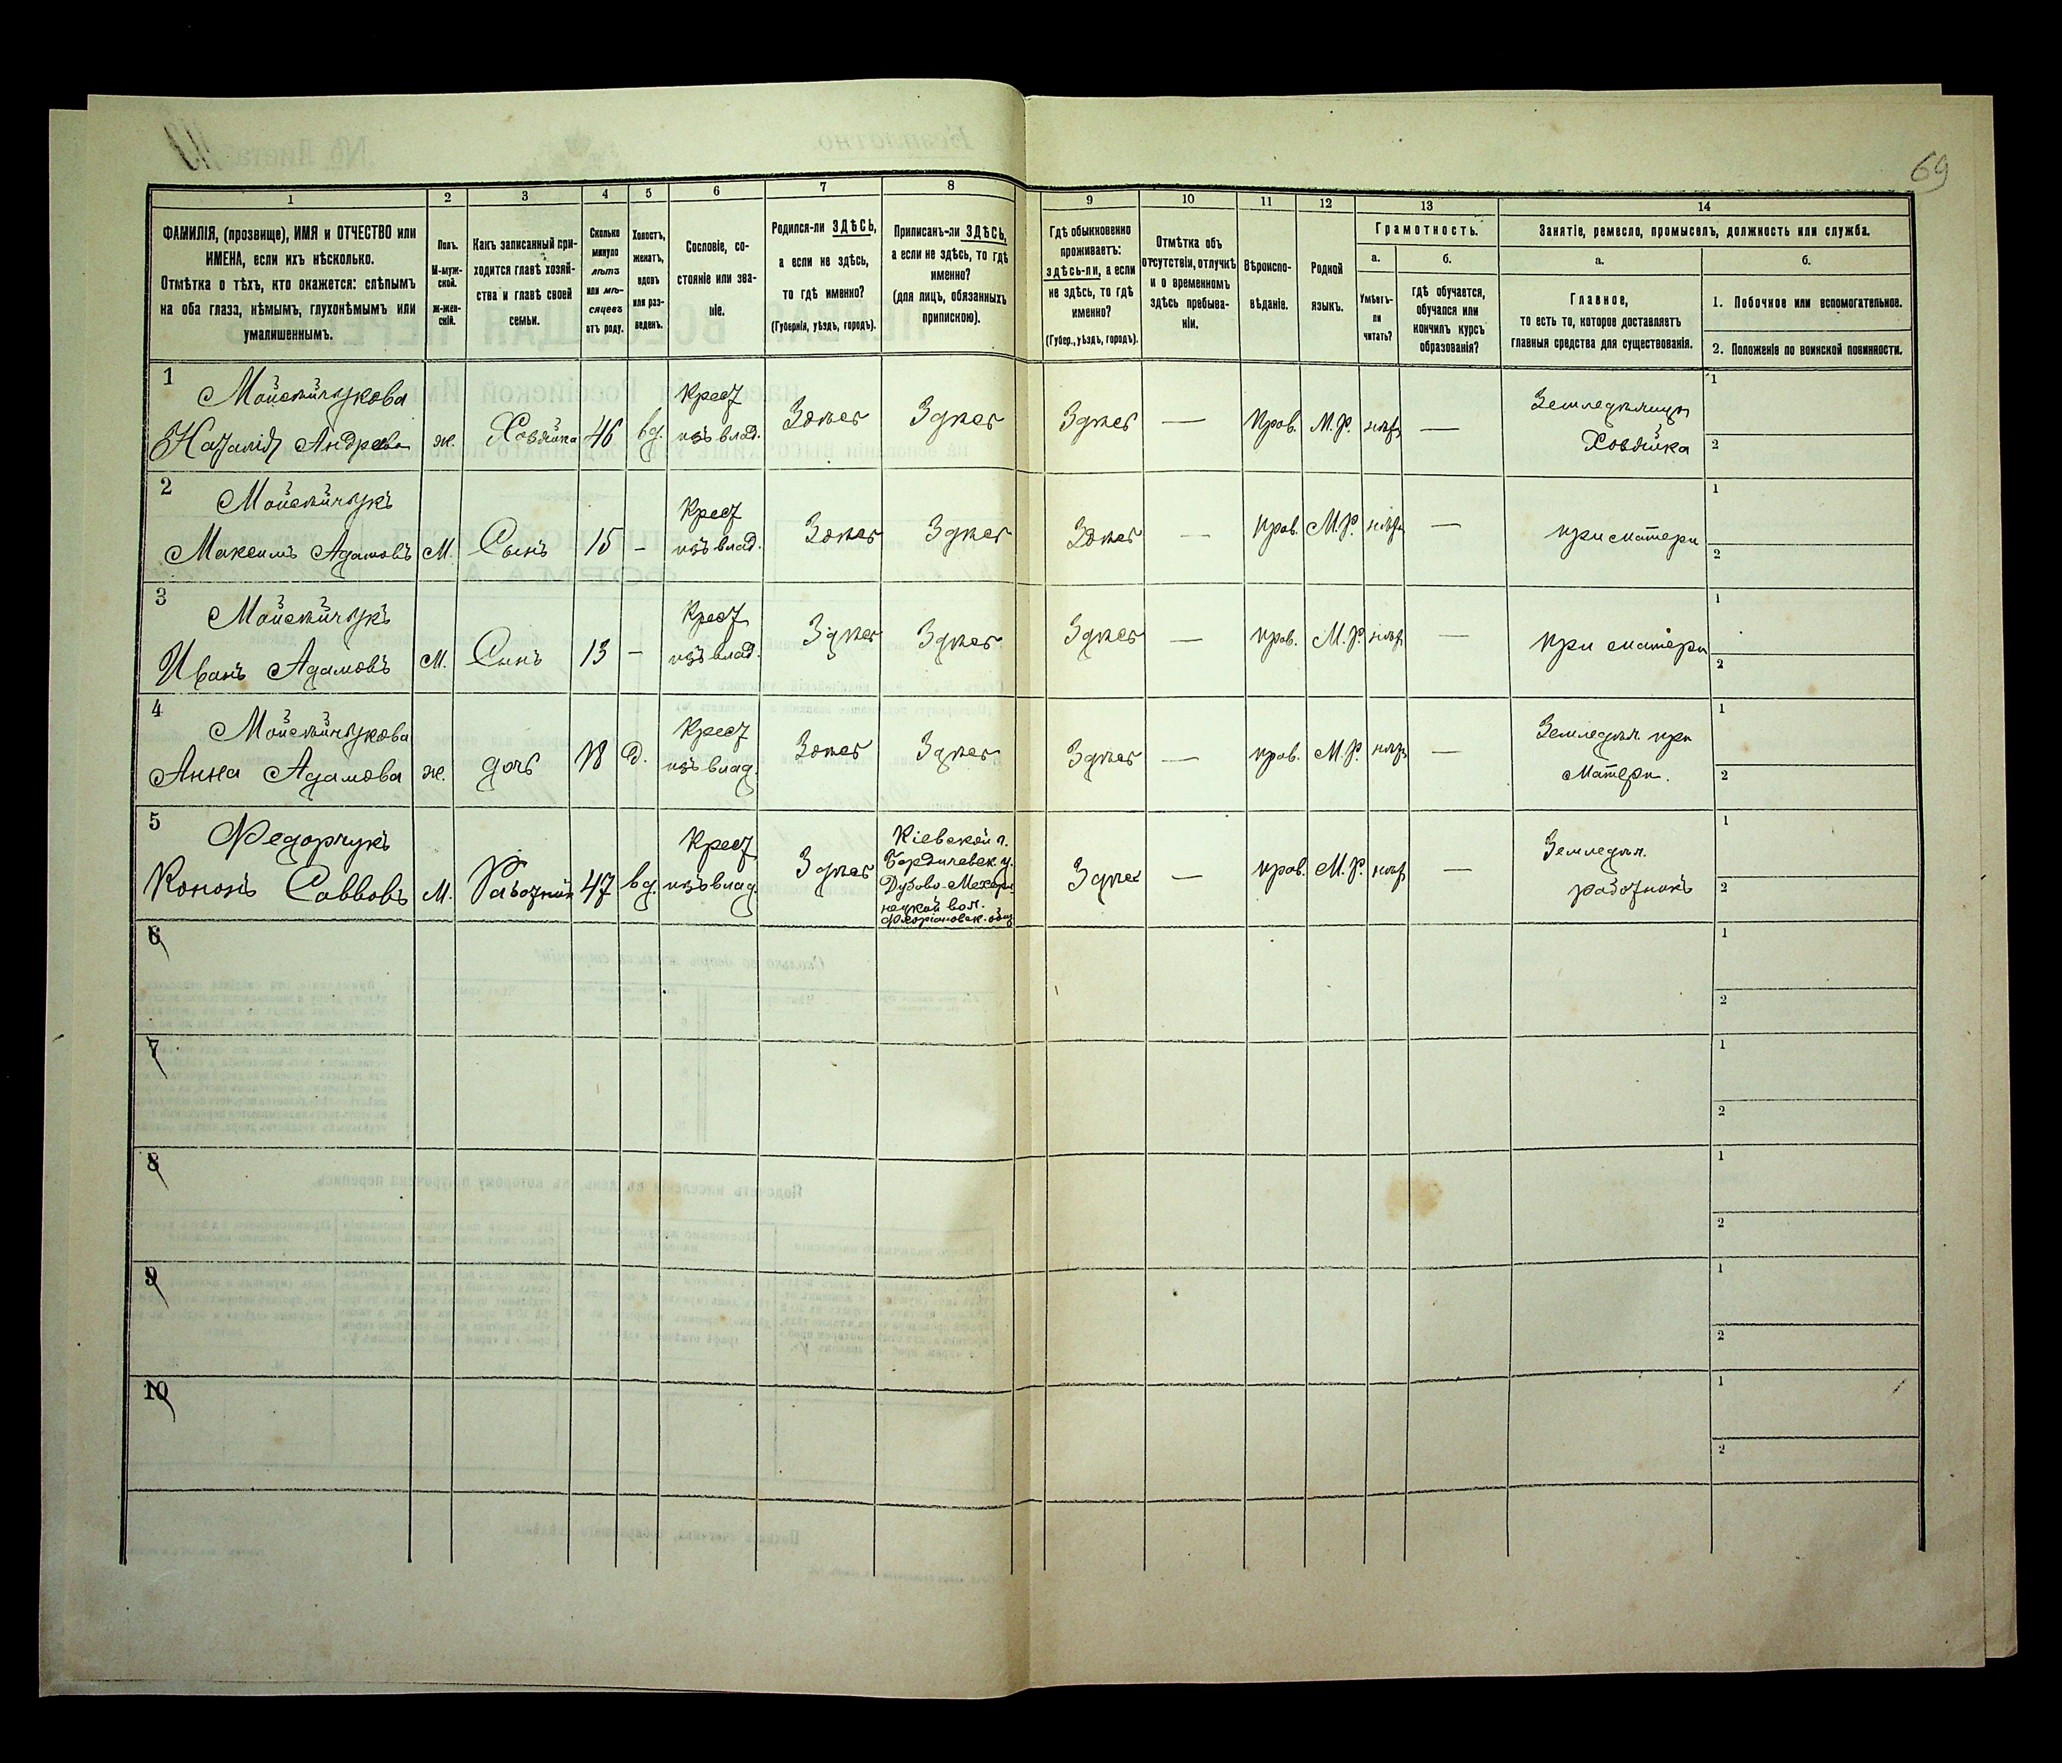 69
1 2 3 4 5 6 7 8 9 10 11 12 13 14
ФАМИЛІЯ, (прозвище), ИМЯ и ОТЧЕСТВО или
ИМЕНА, если ихъ нѣсколько.
Отмѣтка о тѣхъ, кто окажется: слѣпымъ
на оба глаза, нѣмымъ, глухонѣмымъ или
умалишеннымъ.
Полъ.
М-муж-
ской.
Ж-жен-
скій.
Какъ записанный при-
ходится главѣ хозяй-
ства и главѣ своей
семьи.
Сколько
минуло
лѣтъ
или мѣ-
сяцевъ
отъ роду.
Холостъ,
женатъ,
вдовъ
или раз-
веденъ.
Сословіе, со-
стояніе или зва-
ніе.
Родился-ли ЗДѢСЬ,
а если не здѣсь,
то гдѣ именно?
(Губернія, уѣздъ, городъ).
Приписанъ-ли ЗДѢСЬ,
а если не здѣсь, то гдѣ
именно?
(для лицъ, обязанныхъ
припискою).
Гдѣ обыкновенно
проживаетъ:
здѣсь-ли, а если
не здѣсь, то гдѣ
именно?
(Губер., уѣздъ, городъ).
Отмѣтка объ
отсутствіи, отлучкѣ
и о временномъ
здѣсь пребыва-
ніи.
Вѣроиспо-
вѣданіе.
Родной
языкъ.
Грамотность.
а.
Умѣетъ-
ли
читать?
б.
гдѣ обучается,
обучался или
кончилъ курсъ
образованія?
Занятіе, ремесло, промыселъ, должность или служба.
а.
Главное,
то есть то, которое доставляетъ
главныя средства для существованія.
б.
1. Побочное или вспомогательное.
2. Положеніе по воинской повинности.
1
Наталія Андреева
ж.
Хозяйка
46
вд.
Крест
изъ влад.
Здѣсь
Здѣсь
Здѣсь
—
прав.
М.Р.
нѣтъ
—
Хозяйка
1
2
2
Максимъ Адамовъ
М.
Сынъ
15
—
Крест
изъ влад.
Здѣсь
Здѣсь
Здѣсь
—
прав.
М.Р.
нѣтъ
—
при матери
1
2
3
Иванъ Адамовъ
М.
Сынъ
13
—
Крест
изъ влад.
Здѣсь
Здѣсь
Здѣсь
—
прав.
М.Р.
нѣтъ
—
при матери
1
2
4
Анна Адамова
ж.
дочь
18
д.
Крест
изъ влад.
Здѣсь
Здѣсь
Здѣсь
—
прав.
М.Р.
нѣтъ
—
Земледѣл. при
Матери.
1
2
5
Федорчукъ
Кононъ Саввовъ
М.
47
вд.
Крест
изъ влад.
Здѣсь
Кіевской г.
Бердичевск. у.
Здѣсь
—
прав.
М.Р.
нѣтъ
—
Земледѣл.
работникъ
1
2
6
1
2
7
1
2
8
1
2
9
1
2
10
1
2